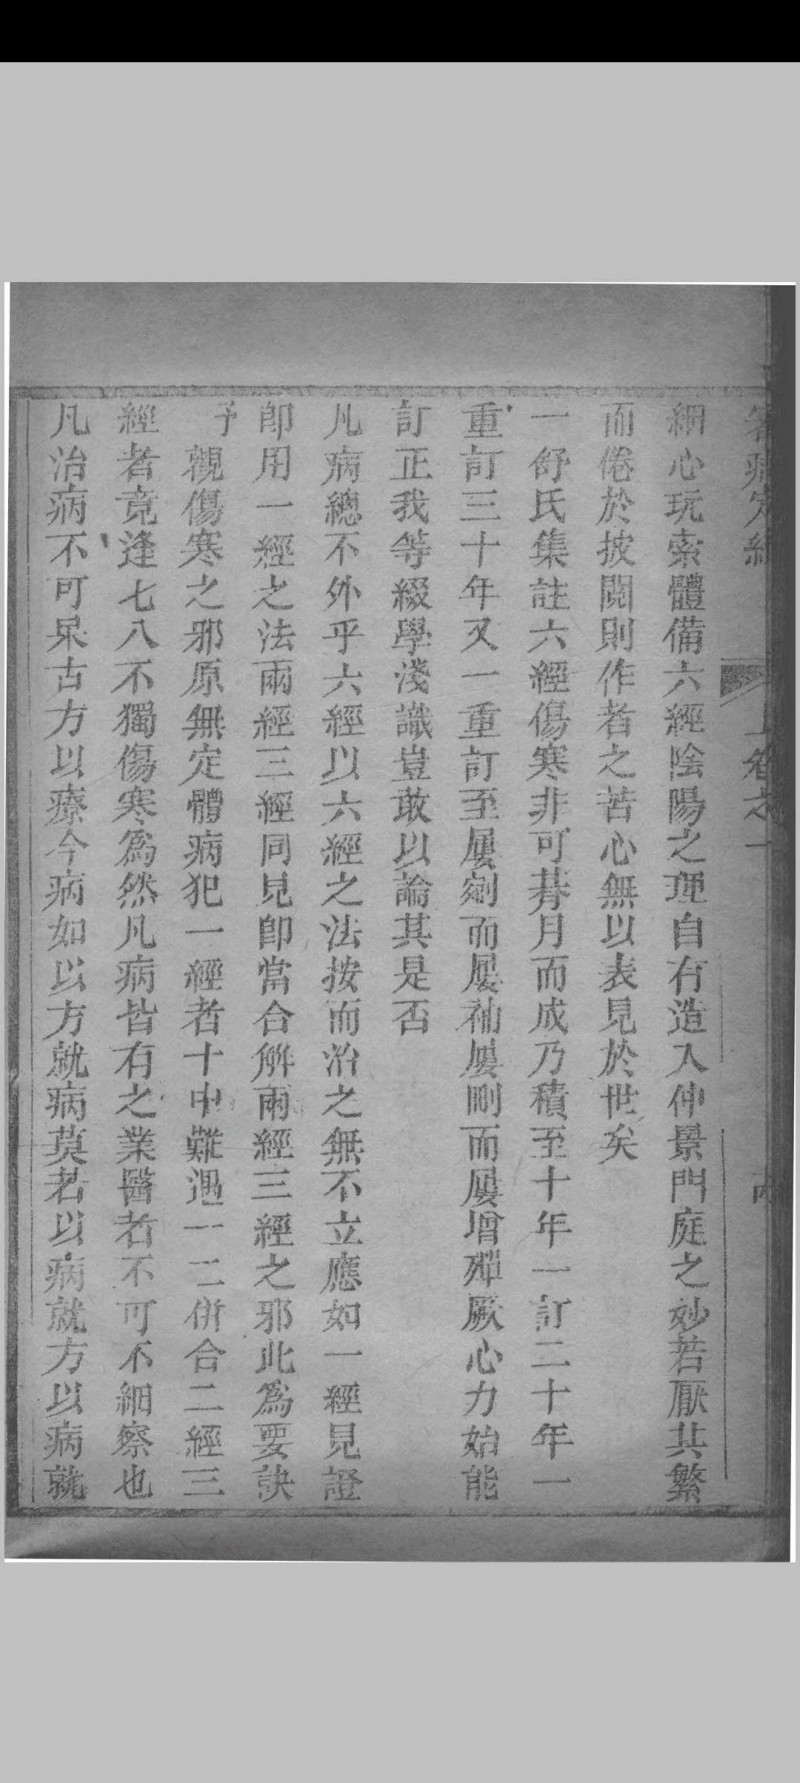 上卷之一
細心玩索體備六經陰陽之理自有造入仲景門庭之妙若厭其繁
而倦於披閱則作者之苦心無以表見於世矣
一舒氏集註六經傷寒非可朞月而成乃積至十年一訂二十年一
重訂三十年又一重訂至屢剜而屢補屢刪而屢增殫厥心力始能
訂正我等綴學淺識豈敢以論其是否
凡病總不外乎六經以六經之法按而治之無不立應如一經見證
卽用一經之法兩經三經同見卽當合觧兩經三經之邪此爲要訣
予觀傷寒之邪原無定體病犯一經者十中難遇一二併合二經三
經者竟逢七八不獨傷寒爲然凡病皆有之業醫者不可不細察也
凡治病不可杲古方以療今病如以方就病莫若以病就方以病就